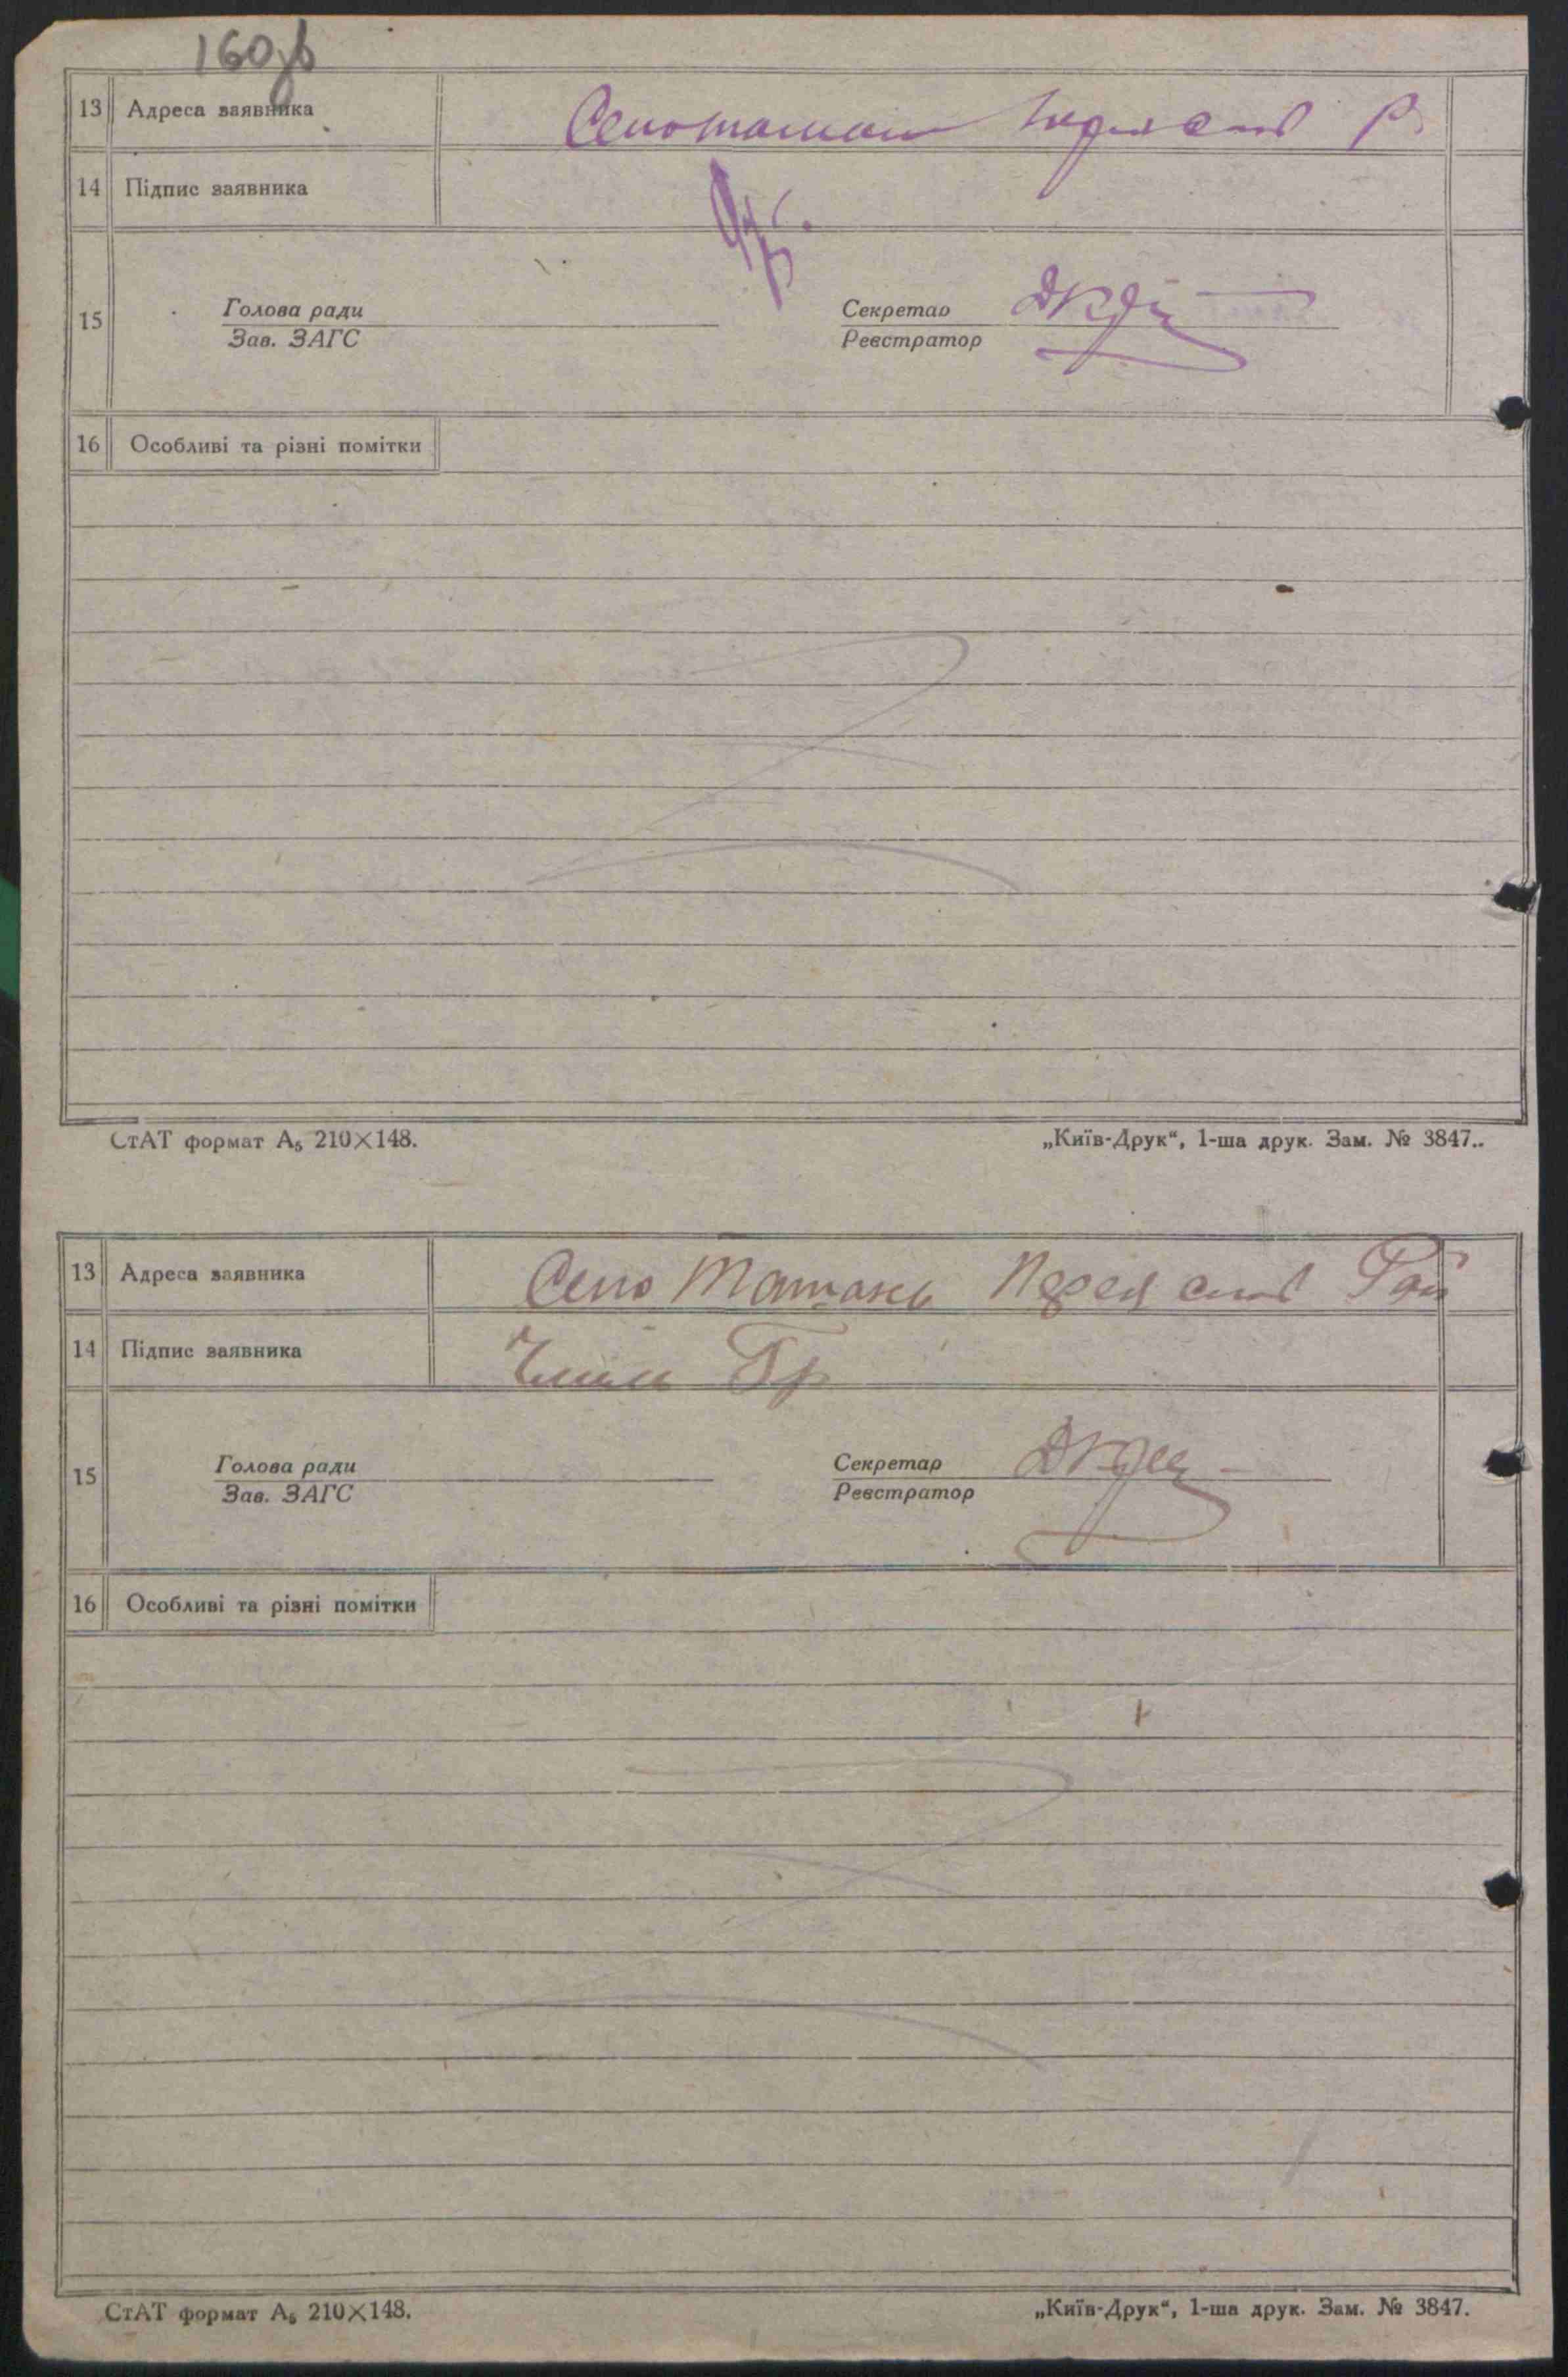 160зв
13 Адреса заявника
14 Підпис заявника
15 Голова ради Секретар
Зав. ЗАГС Реєстратор
16 Особливі та різні помітки
СтАТ формат А5 210×148. „Київ-Друк“, 1-ша друк. Зам. № 3847..
13 Адреса заявника Село Ташань Переяслов Рай
14 Підпис заявника
15 Голова ради Секретар
Зав. ЗАГС Реєстратор
16 Особливі та різні помітки
СтАТ формат А5 210×148. „Київ-Друк“, 1-ша друк. Зам. № 3847.